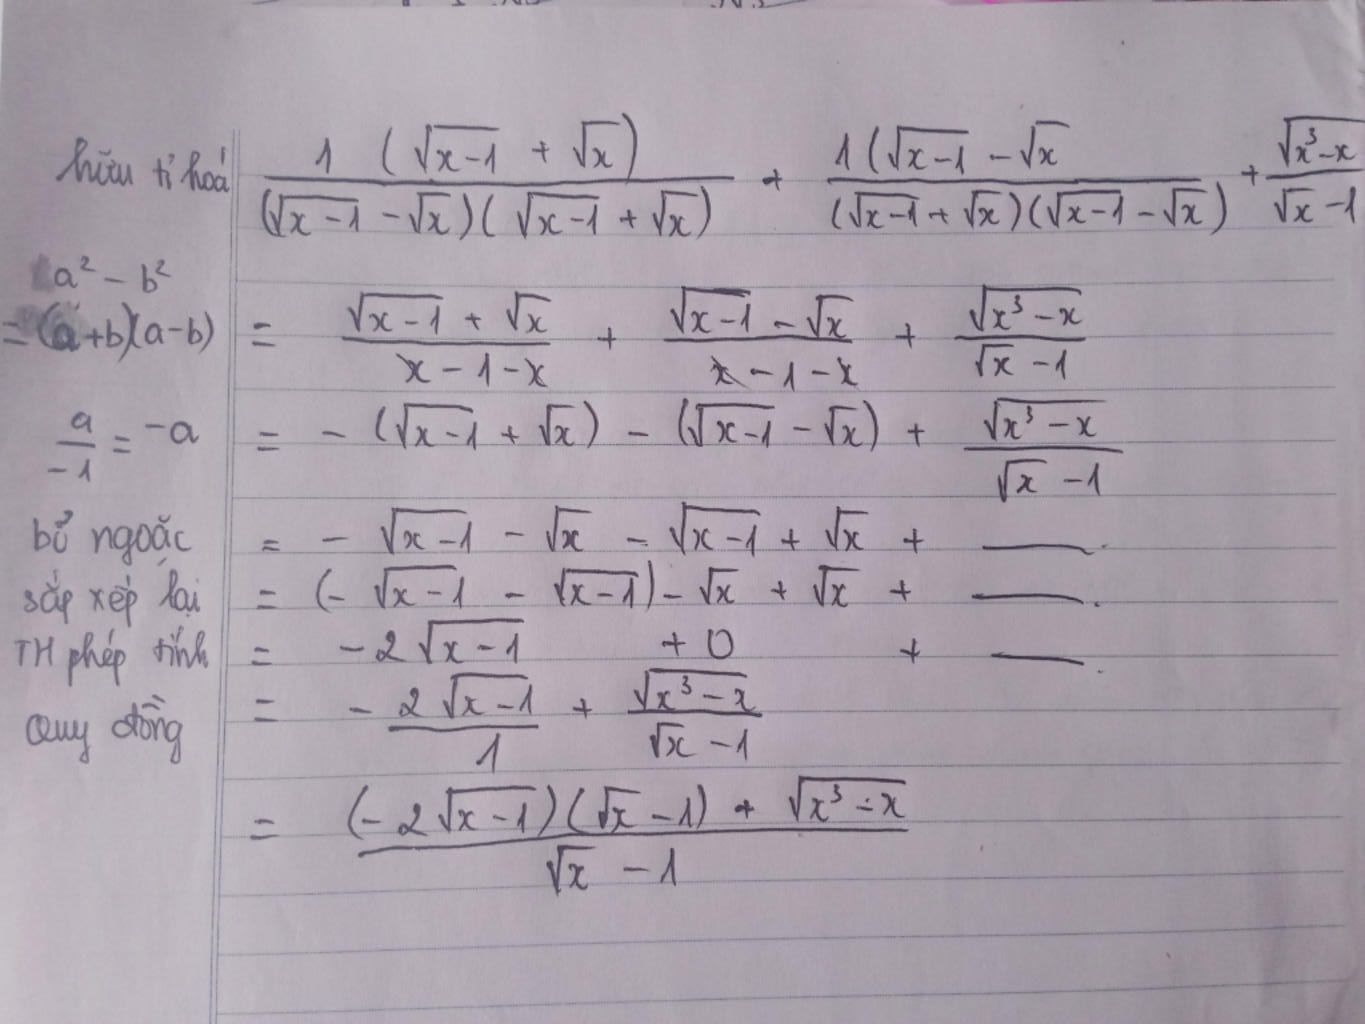 hữu tỉ hoá 1 (√(x-1) + √x) / (√(x-1) - √x)(√(x-1) + √x) + 1(√(x-1) - √x / (√(x-1) + √x)(√(x-1) - √x) + √(x³-x) / √x - 1
a² - b²
= (a+b)(a-b) = √(x-1) + √x / x - 1 - x + √(x-1) - √x / x - 1 - x + √(x³-x) / √x - 1
a / -1 = -a = - (√(x-1) + √x) - (√(x-1) - √x) + √(x³-x) / √x - 1
bỏ ngoặc = - √(x-1) - √x - √(x-1) + √x + —
sắp xếp lại = (- √(x-1) - √(x-1)) - √x + √x + —.
TH phép tính = -2√(x-1) + 0 + —.
Quy đồng = - 2√(x-1) / 1 + √(x³-x) / √x - 1
= (-2√(x-1))(√x - 1) + √(x³-x) / √x - 1